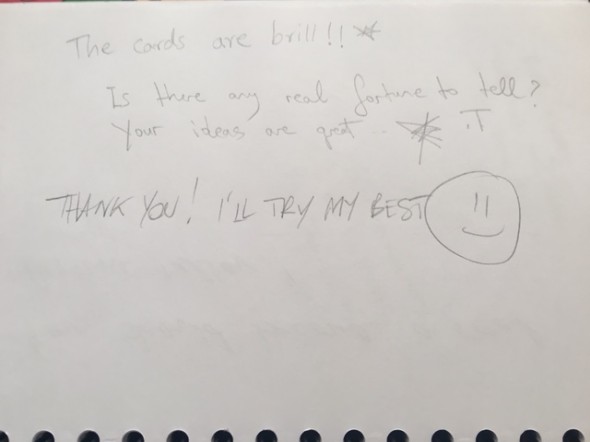 The cards are brill!!
Is there any real fortune to tell?
Your ideas are great .. .T
THANK YOU! I'LL TRY MY BEST